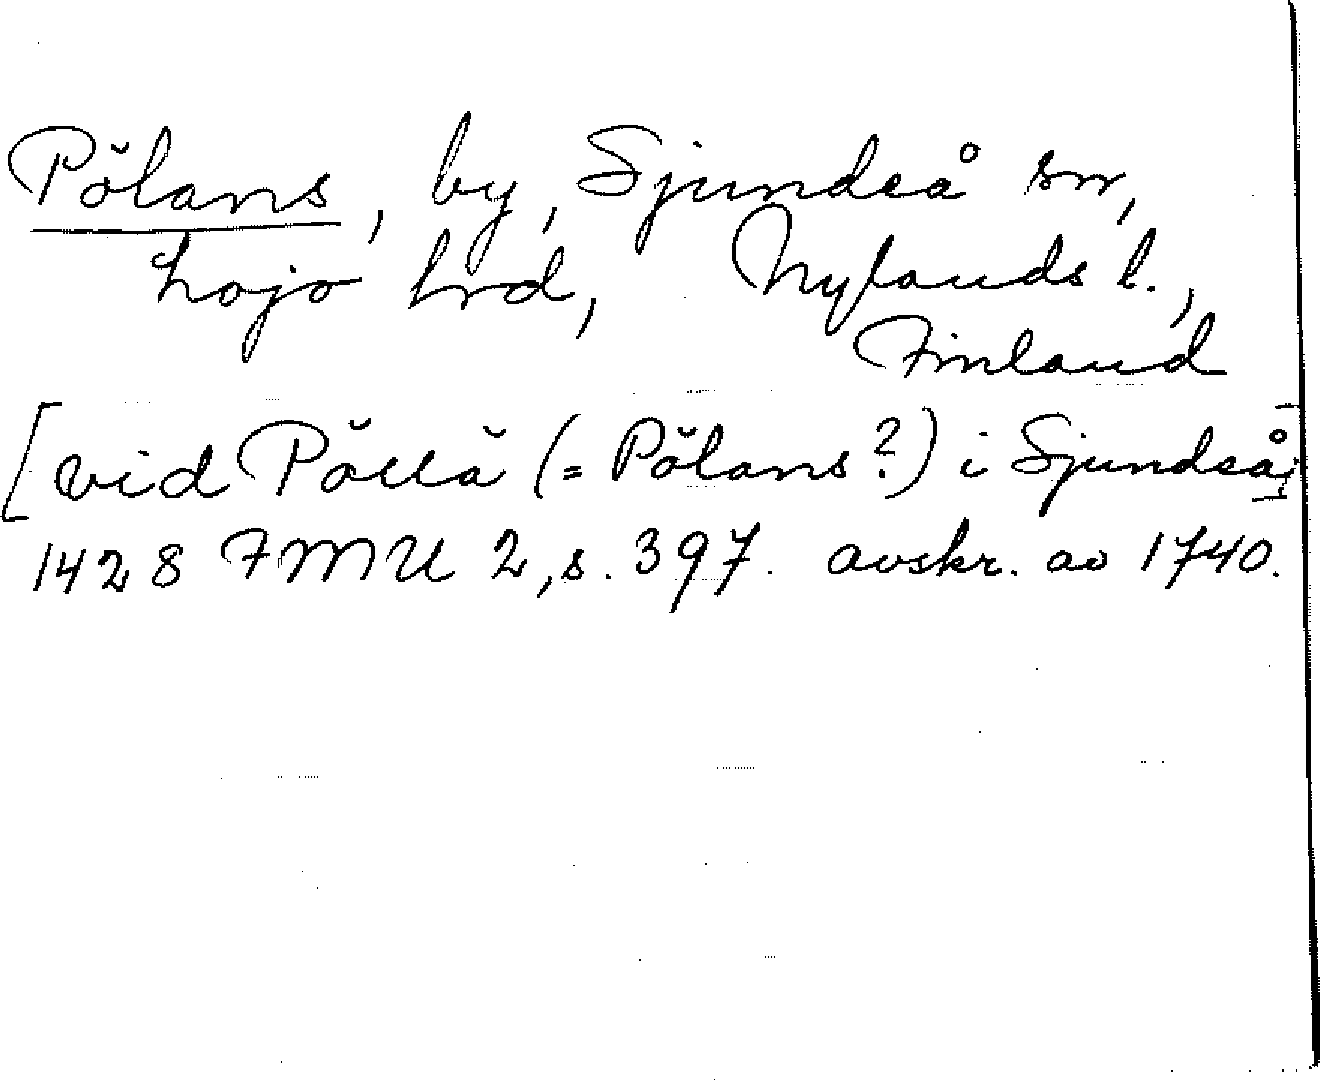 Pölans, by, Sjundeå sn,
Lojo hrd, Nylands l.,
Finland
[vid Pöllä (= Pölans?) i Sjundeå]
1428 FMU 2, s. 397. avskr. av 1740.